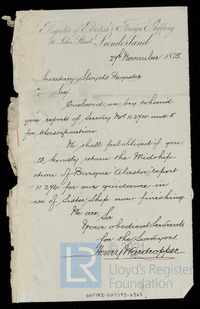 Register of British & Foreign Shipping
John Street, Sunderland
27th November 1875
Secretary Lloyd's Register
Sir
Enclosed we beg to hand
you reports of Survey Nos 11240 and 5
for classification
We shall feel obliged if you
kindly return the Midship
of Barque "Alastor" report
11240 for our guidance in
case of Sister Ship now finishing
We are Sir
Your obedient Servants
for the Surveyors
Henry Wardropper
Lloyd's Register
Foundation